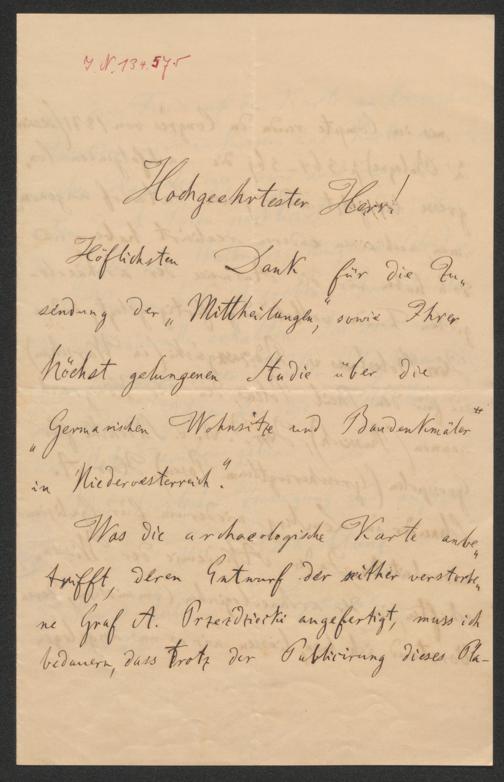 J. N. 134.575
Hochgeehrtester Herr!
Höflichsten Dank für die Zu„
sendung der „Mittheilungen“, sowie Ihrer
höchst gelungenen Studie über die
„Germanischen Wohnsitze und Baudenkmäler
in Niederoesterreich“.
Was die archaeologische Karte anbe„
trifft, deren Entwurf der seither verstorbe„
ne Graf A. Przezdziecki angefertigt, muss ich
bedauern, dass trotz der Publicirung dieses Pla-